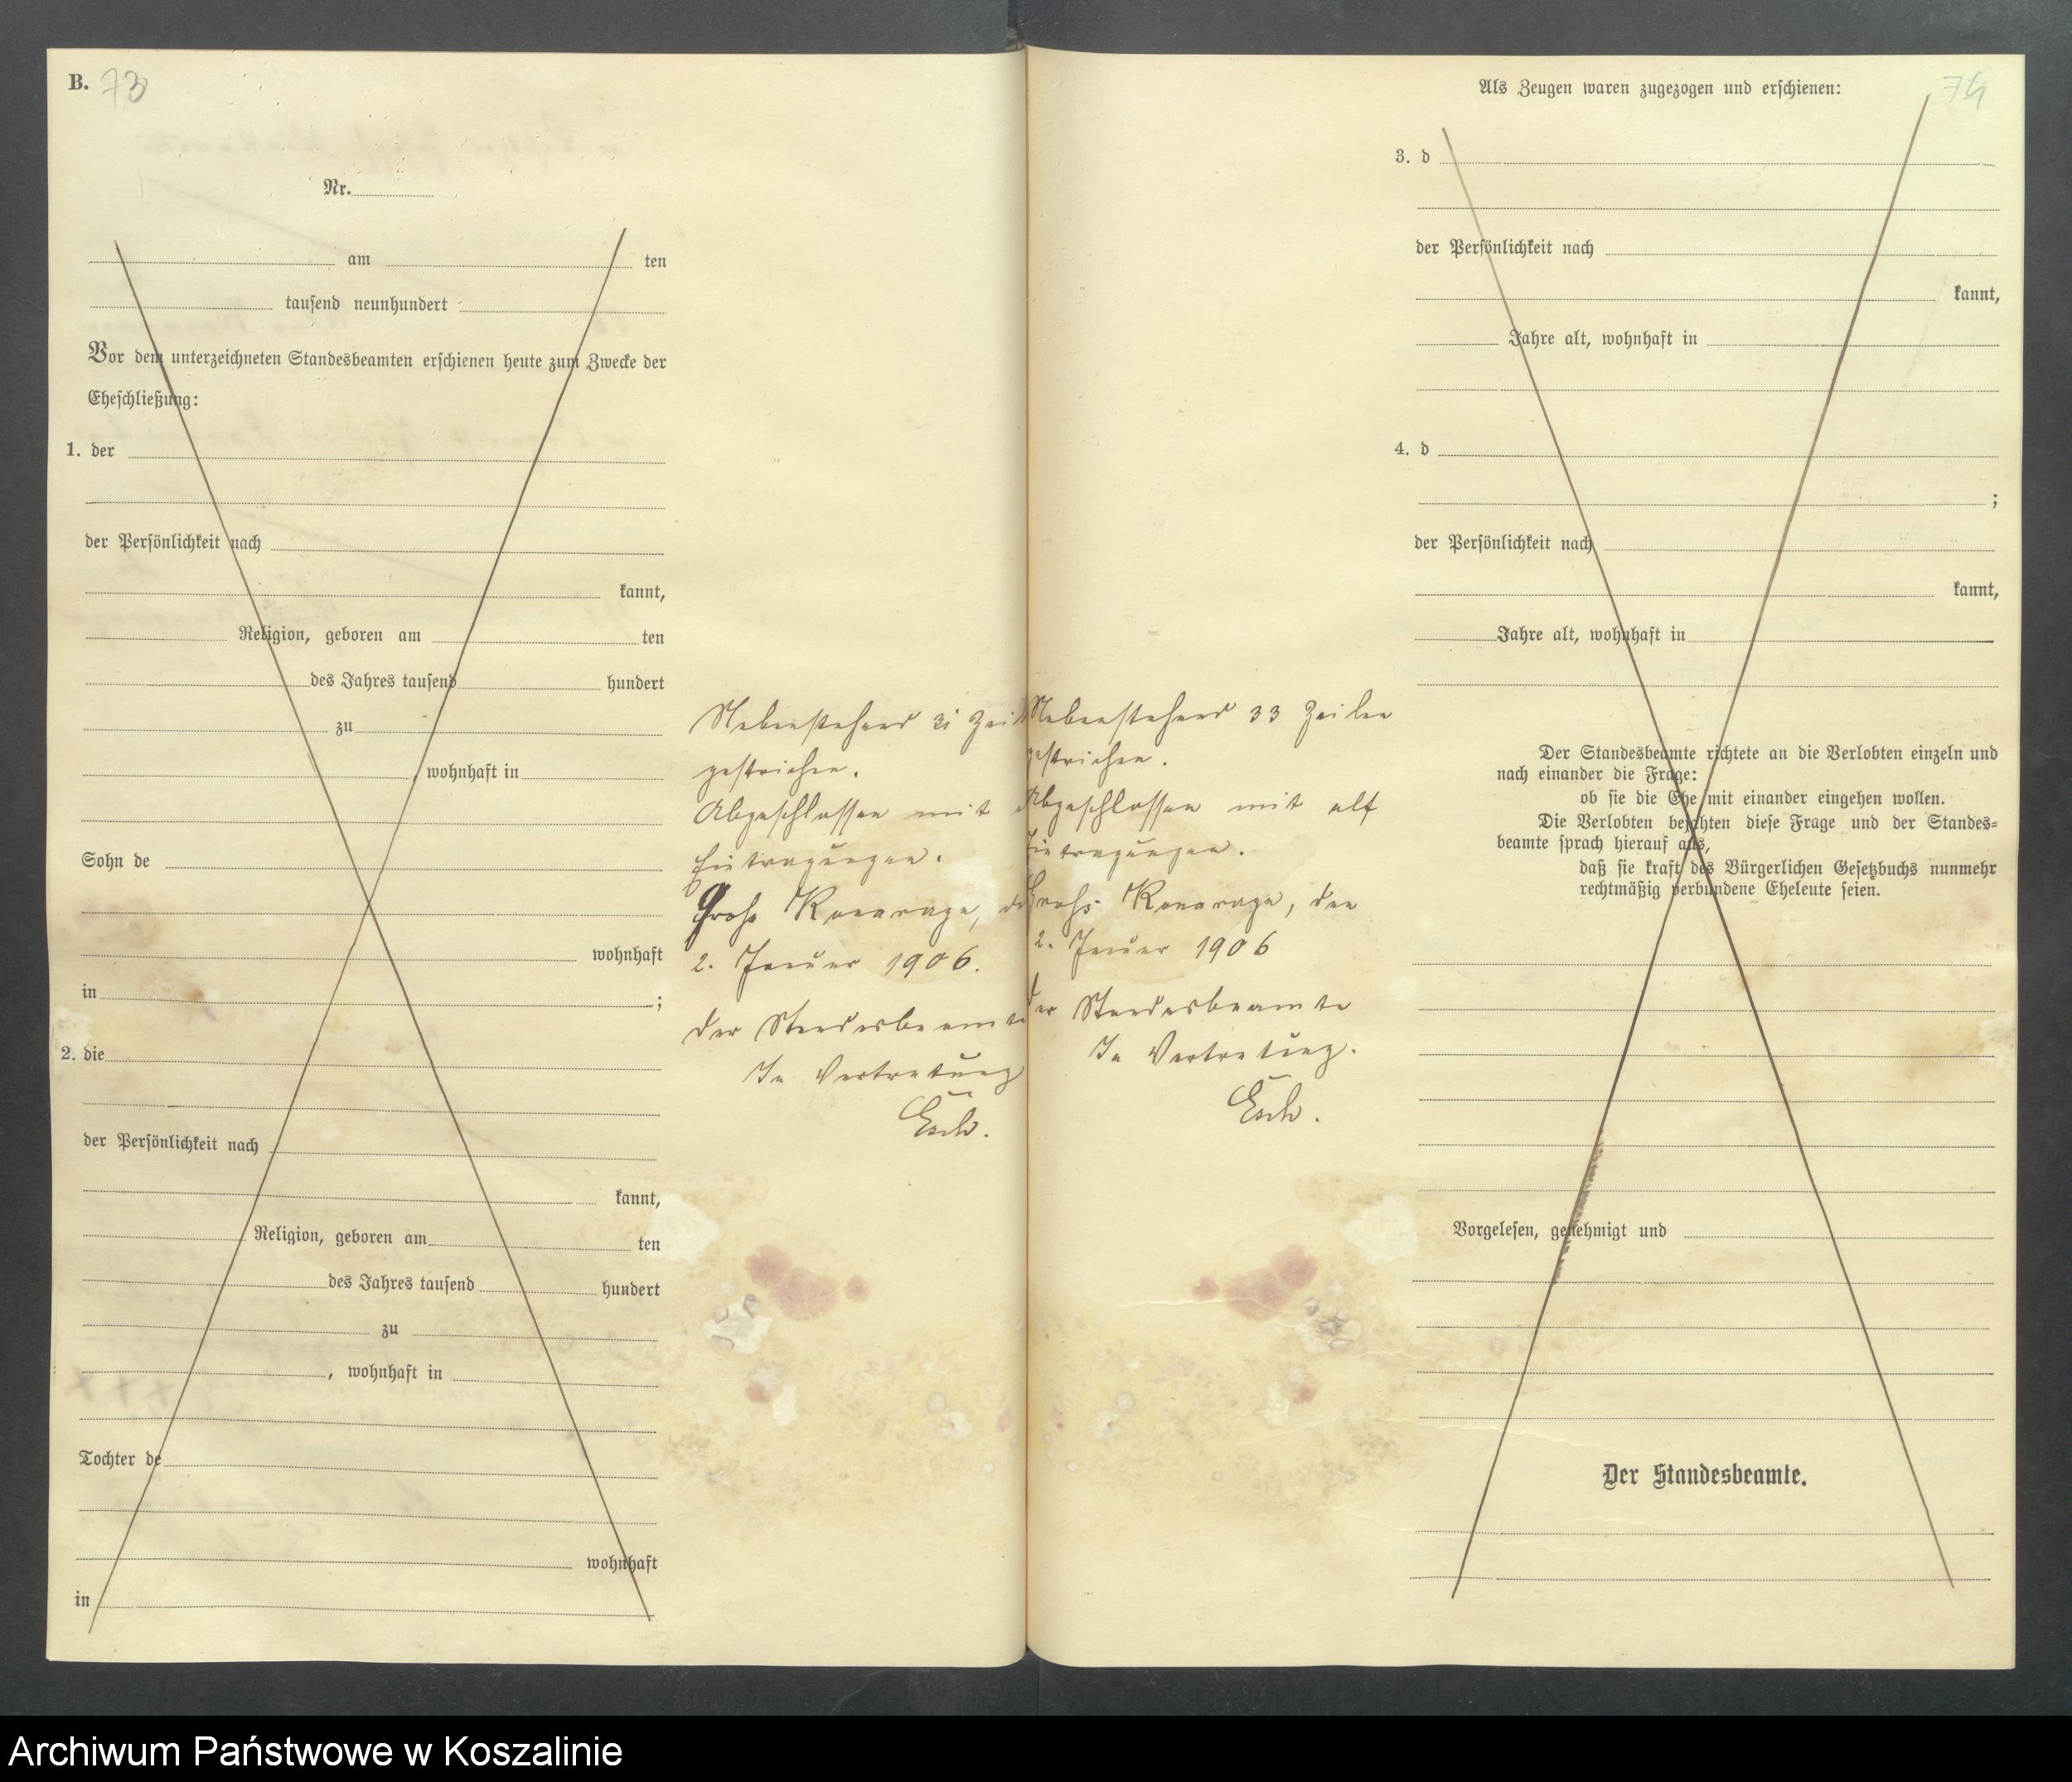 B. 73
Nr.
am ten
tausend neunhundert
Vor dem unterzeichneten Standesbeamten erschienen heute zum Zwecke der
Eheschließung:
1. der
der Persönlichkeit nach
kannt,
Religion, geboren am ten
des Jahres tausend hundert
zu
, wohnhaft in
Sohn de
wohnhaft
in ;
2. die
der Persönlichkeit nach
kannt,
Religion, geboren am ten
des Jahres tausend hundert
zu
, wohnhaft in
Tochter de
wohnhaft
in
Nebenstehend
gestrichen.
Abgeschlossen mit
Eintragungen.
Groß Konarage,
2. Januar 1906.
Der Standesbeamte
In Vertretung
Esch.
Nebenstehend 33 Zeilen
gestrichen.
Abgeschlossen mit elf
Eintragungen.
Groß Konarage, den
2. Januar 1906
Der Standesbeamte
In Vertretung.
Esch.
Als Zeugen waren zugezogen und erschienen: 74
3. d
der Persönlichkeit nach
kannt,
Jahre alt, wohnhaft in
4. d
;
der Persönlichkeit nach
kannt,
Jahre alt, wohnhaft in
Der Standesbeamte richtete an die Verlobten einzeln und
nach einander die Frage:
ob sie die Ehe mit einander eingehen wollen.
Die Verlobten bejahten diese Frage und der Standes-
beamte sprach hierauf aus,
daß sie kraft des Bürgerlichen Gesetzbuchs nunmehr
rechtmäßig verbundene Eheleute seien.
Vorgelesen, genehmigt und
Der Standesbeamte.
Archiwum Państwowe w Koszalinie